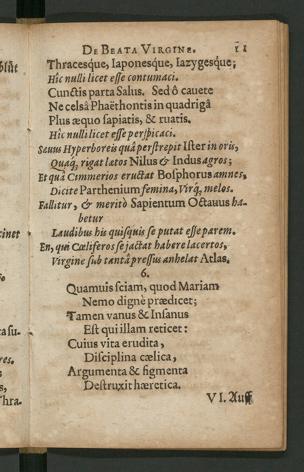 DE BEATA VIRGINE. 11
Thracesque, Iaponesque, Iazygesque;
Hîc nulli licet esse contumaci.
Cunctis parta Salus. Sed ô cauete
Ne celsâ Phaëthontis in quadrigâ
Plus æquo sapiatis, & ruatis.
Hîc nulli licet esse perspicaci.
Sæuus Hyperboreis quà perstrepit Ister in oris,
Quaq́, rigat latos Nilus & Indus agros;
Et quà Cimmerios eructat Bosphorus amnes,
Dicite Parthenium femina, Virq́, melos.
Fallitur, & meritò Sapientum Octauus ha-
betur
Laudibus hic quisquis se putat esse parem.
En, qui Cæliferos se jactat habere lacertos,
Virgine sub tantâ pressus anhelat Atlas.
6.
Quamuis sciam, quod Mariam
Nemo dignè prædicet;
Tamen vanus & Insanus
Est qui illam reticet:
Cuius vita erudita,
Disciplina cælica,
Argumenta & figmenta
Destruxit hæretica.
VI. Auff